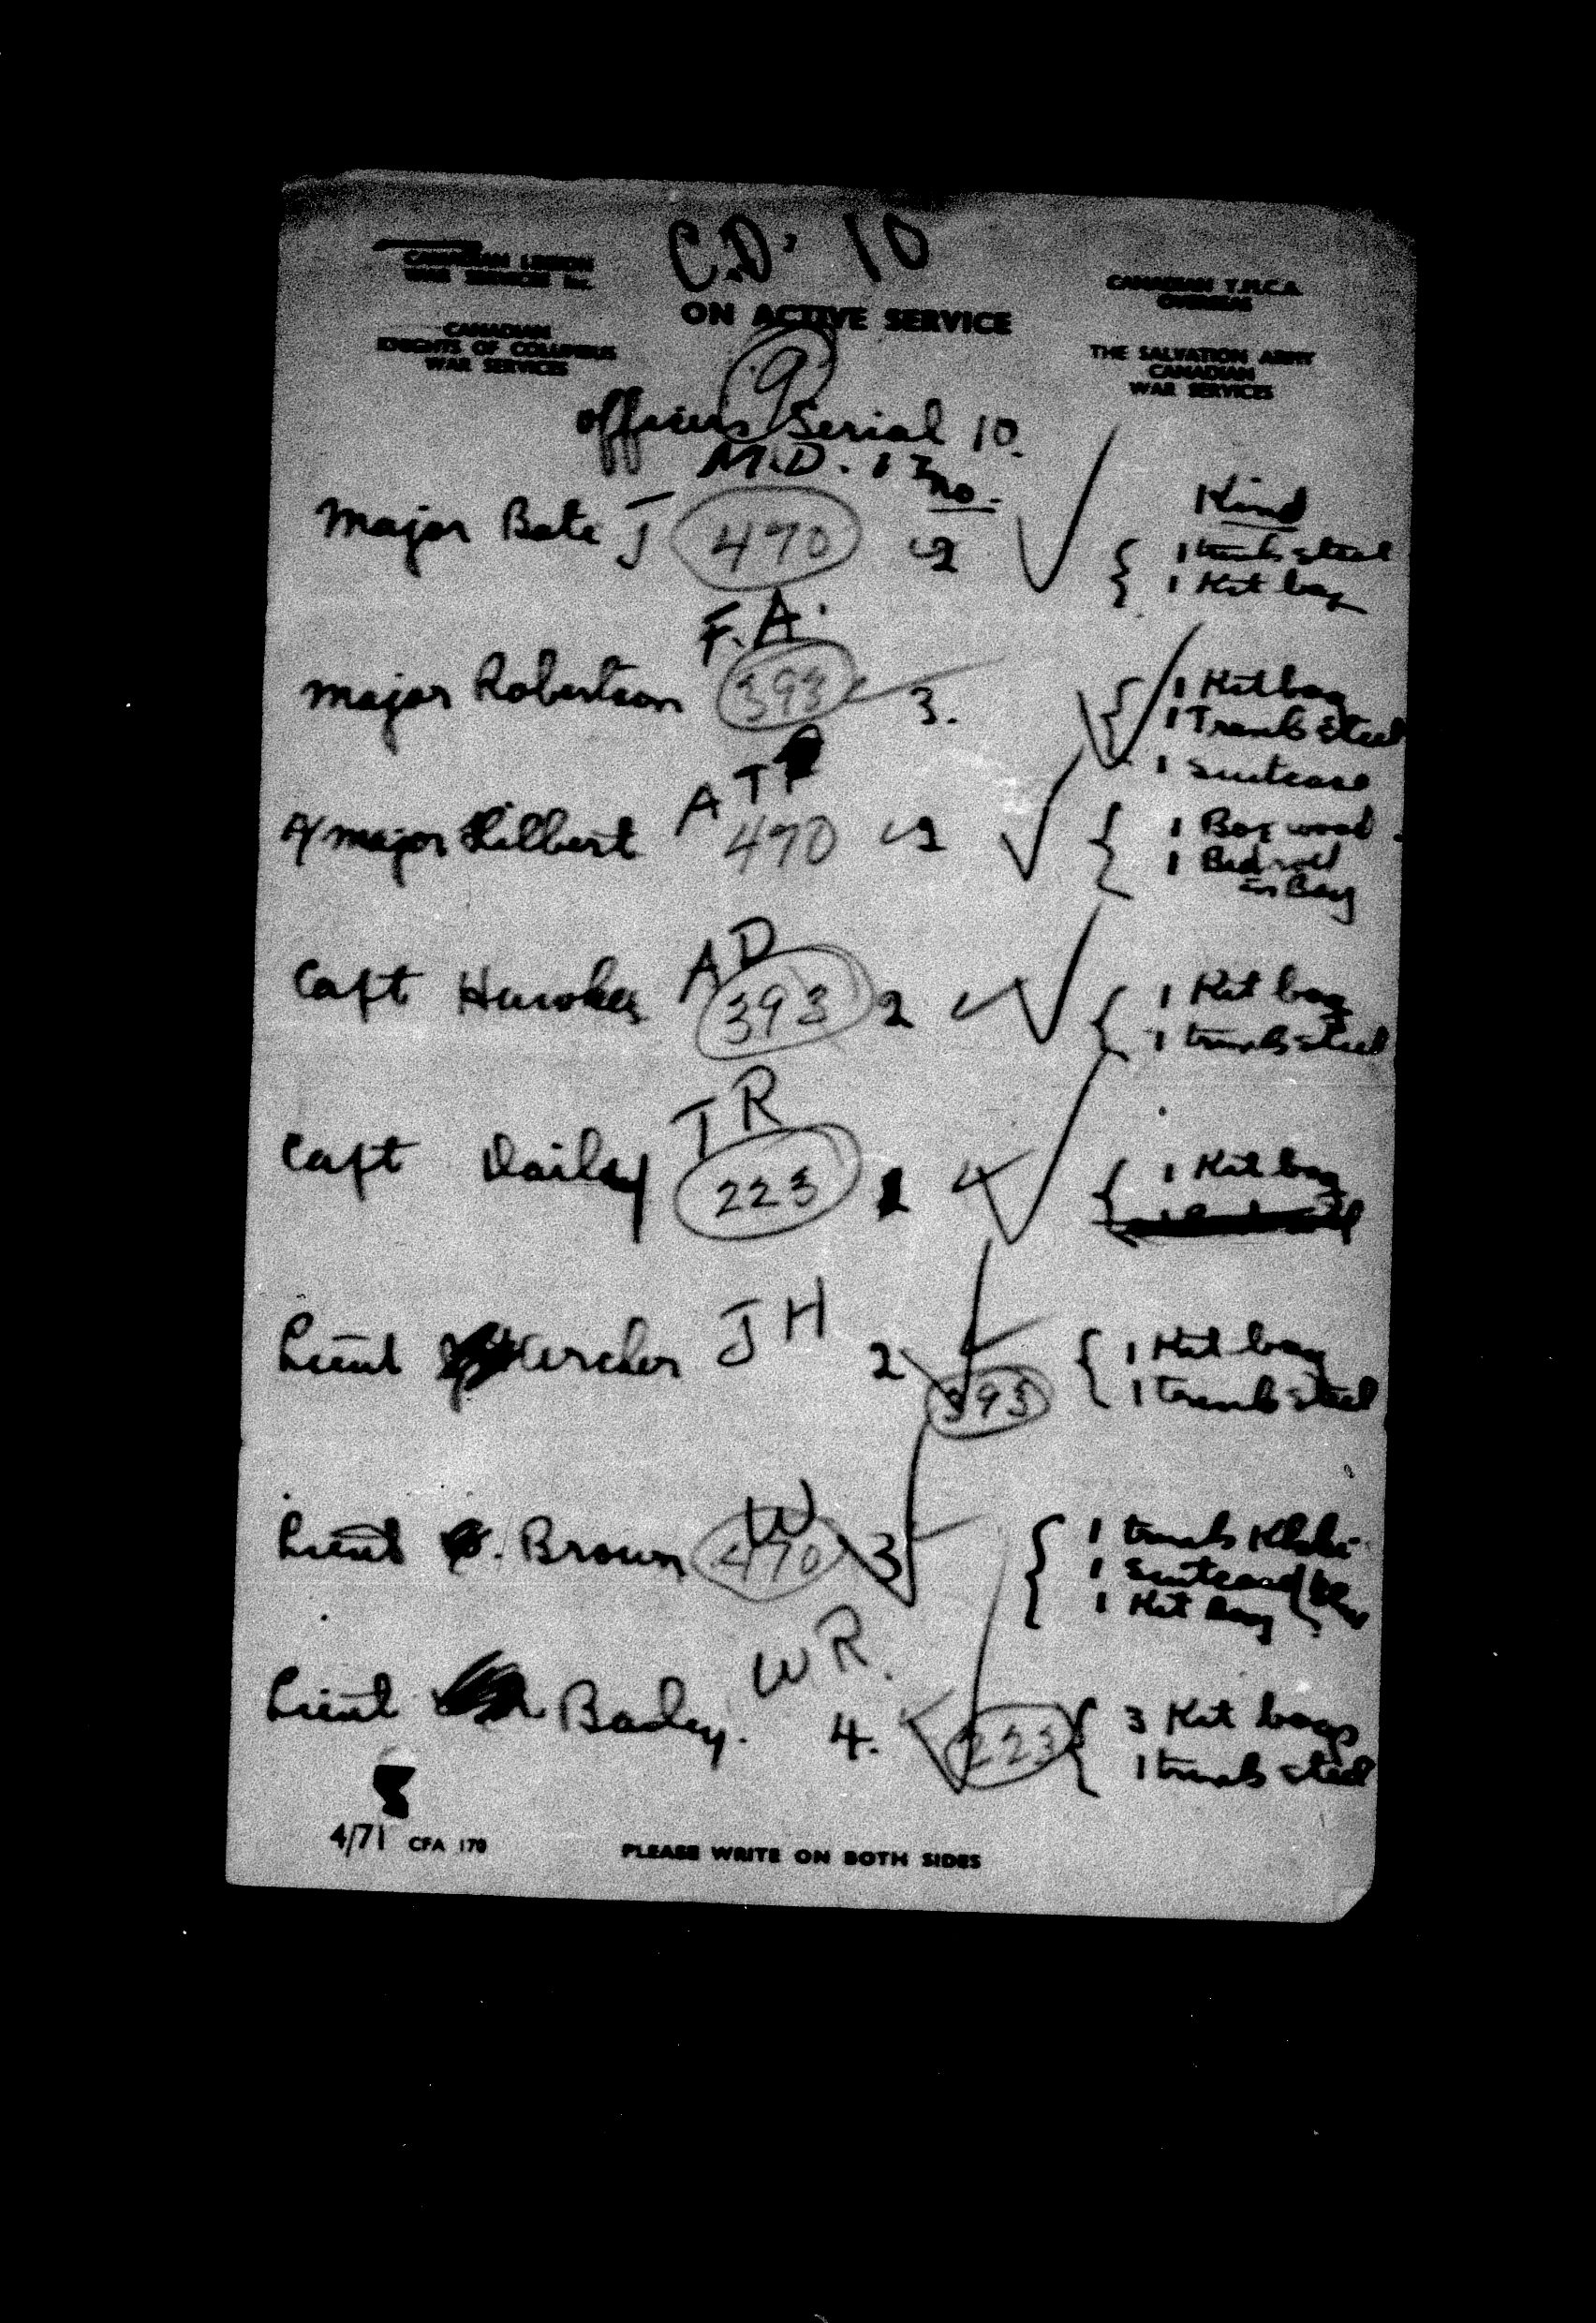 C.D. 10
CANADIAN LEGION
WAR SERVICES Inc.
CANADIAN Y.M.C.A.
OVERSEAS
ON ACTIVE SERVICE
CANADIAN
KNIGHTS OF COLUMBUS
WAR SERVICES
THE SALVATION ARMY
CANADIAN
WAR SERVICES
9
officers Serial 10.
M.D. 1
no. Kind
Major Bate J 470 2 1 trunk steel
1 Kit bag
F.A.
Major Robertson 393 3. 1 Kit bag
1 Trunk Steel
1 Suitcase
A/Major Hilbert AT 470 2 1 Box wood.
1 Bedroll
in Bag
Capt Hawkes AD 393 2 1 Kit bag
1 trunk steel
Capt Dailey TR 223 1 1 Kit bag
Lieut Kercher JH 2 393 1 Kit bag
1 trunk steel
Lieut Brown W 470 3 1 trunk Khaki
1 Suitcase
1 Kit Bag
Lieut Bailey. WR. 4. 223 3 Kit bags
1 trunk steel
4/71 CFA 170 PLEASE WRITE ON BOTH SIDES